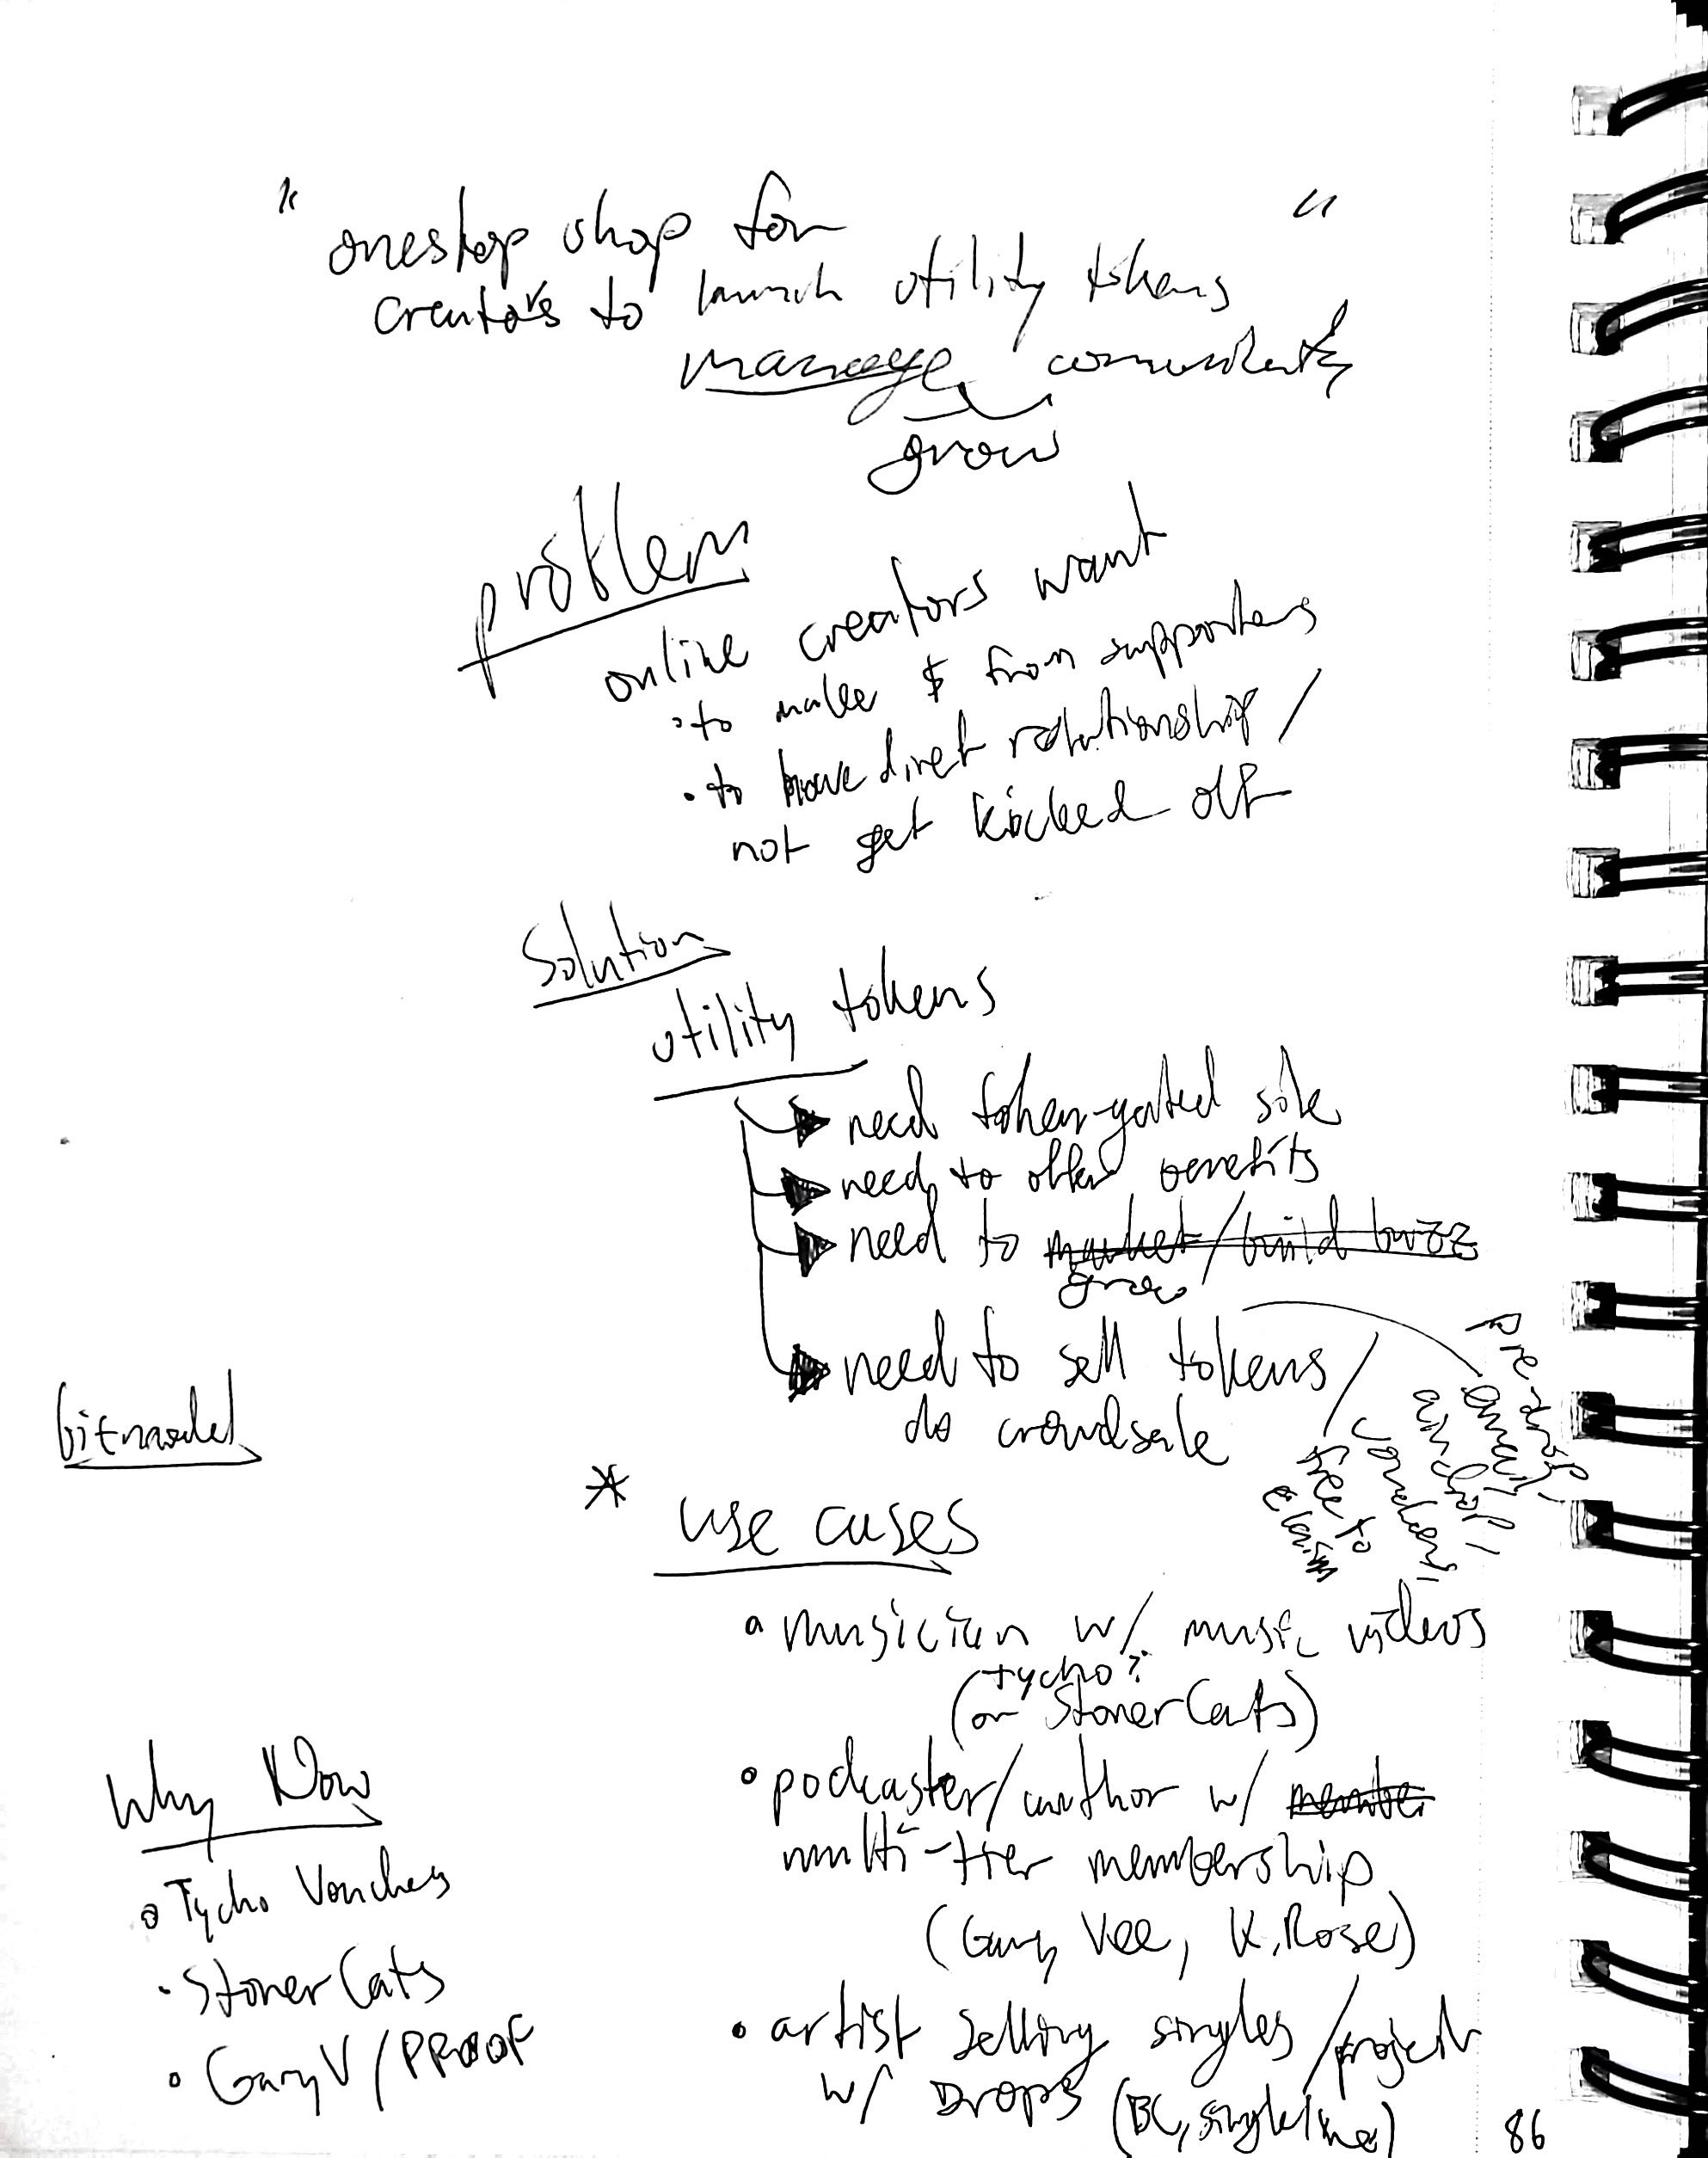 "onestop shop for
creators to launch utility tokens"
manage community
grow
problem
online creators want
• to make $ from supporters
• to have direct relationship /
not get kicked off
Solution
utility tokens
need token-gated site
need to offer benefits
need to market/build buzz
grow
need to sell tokens /
do crowdsale
pre-drop
email,
airdrop /
vouchers,
free to
claim
bitmodel
* use cases
• musician w/ music videos
(Tycho?
or StonerCats)
• podcaster/author w/ member
multi-tier membership
(Gary Vee, K. Rose)
• artist selling singles/projects
w/ DROPS (BC, singleline)
Why Now
• Tycho Vouchers
• StonerCats
• GaryV / PROOF
86